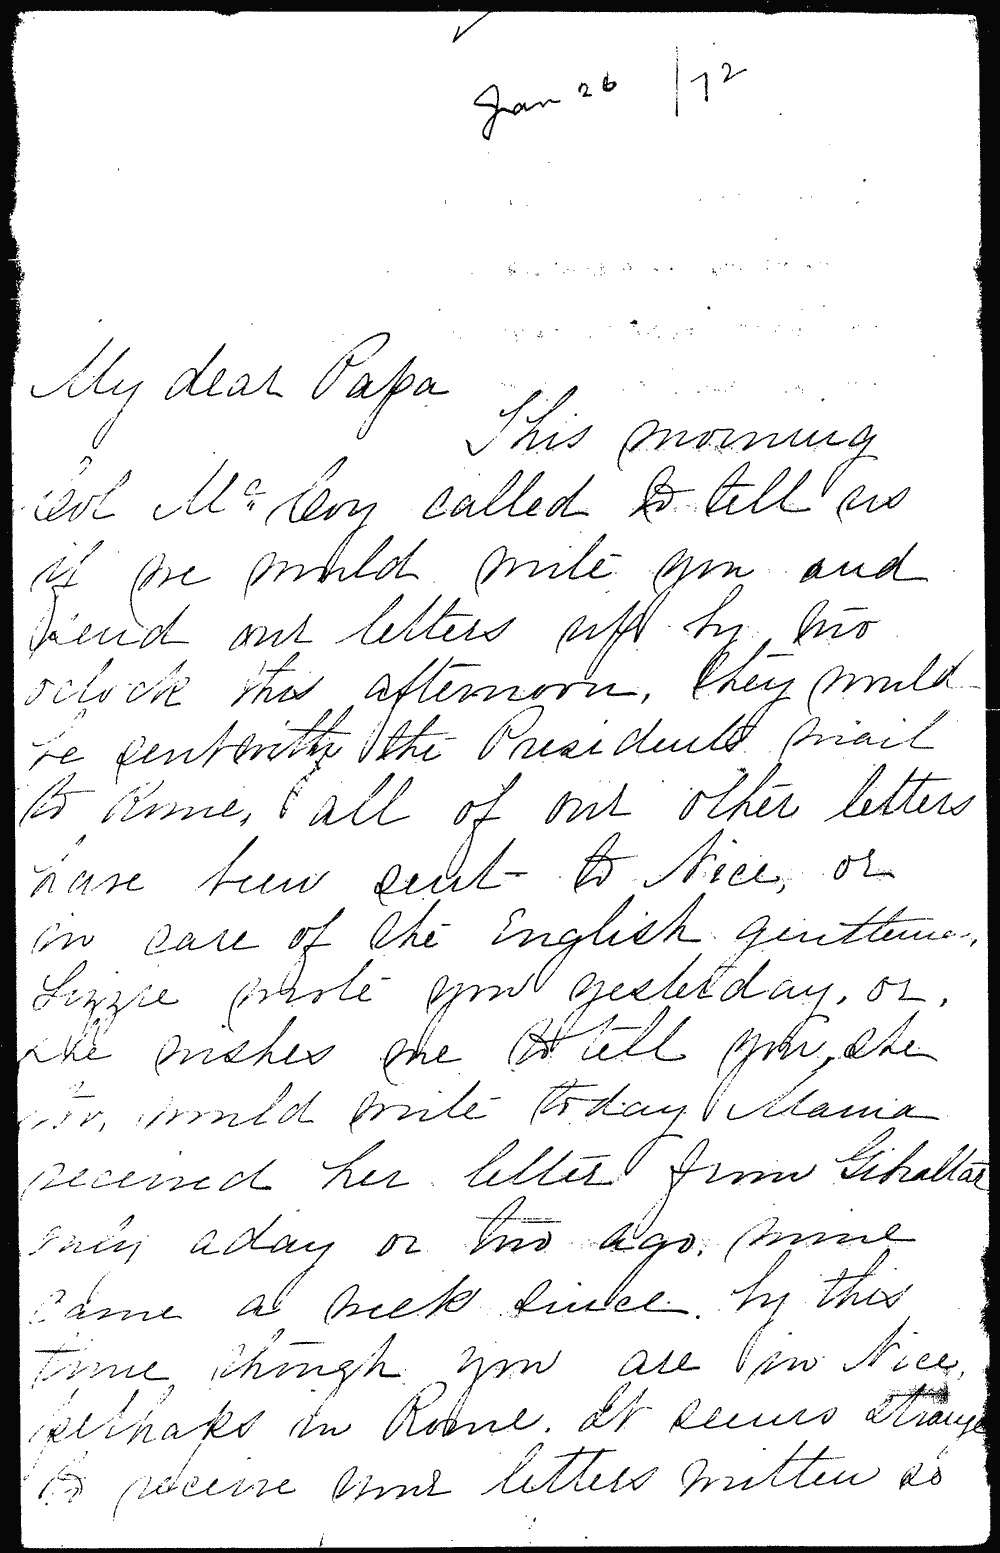 Jan 26 /72
My dear Papa
This morning
Col Mc Coy called to tell us
if we would write you and
send our letters up by two
oclock this afternoon, they would
be sent with the Presidents mail
to Rome, all of our other letters
have been sent to Nice, or
in care of the English gentleman,
Lizzie wrote you yesterday, or,
she wishes me to tell you, she
too, would write today Mama
received her letter from Gibraltar
only a day or two ago. mine
came a week since. by this
time though you are in Nice,
perhaps in Rome. It seems strange
to receive your letters written so